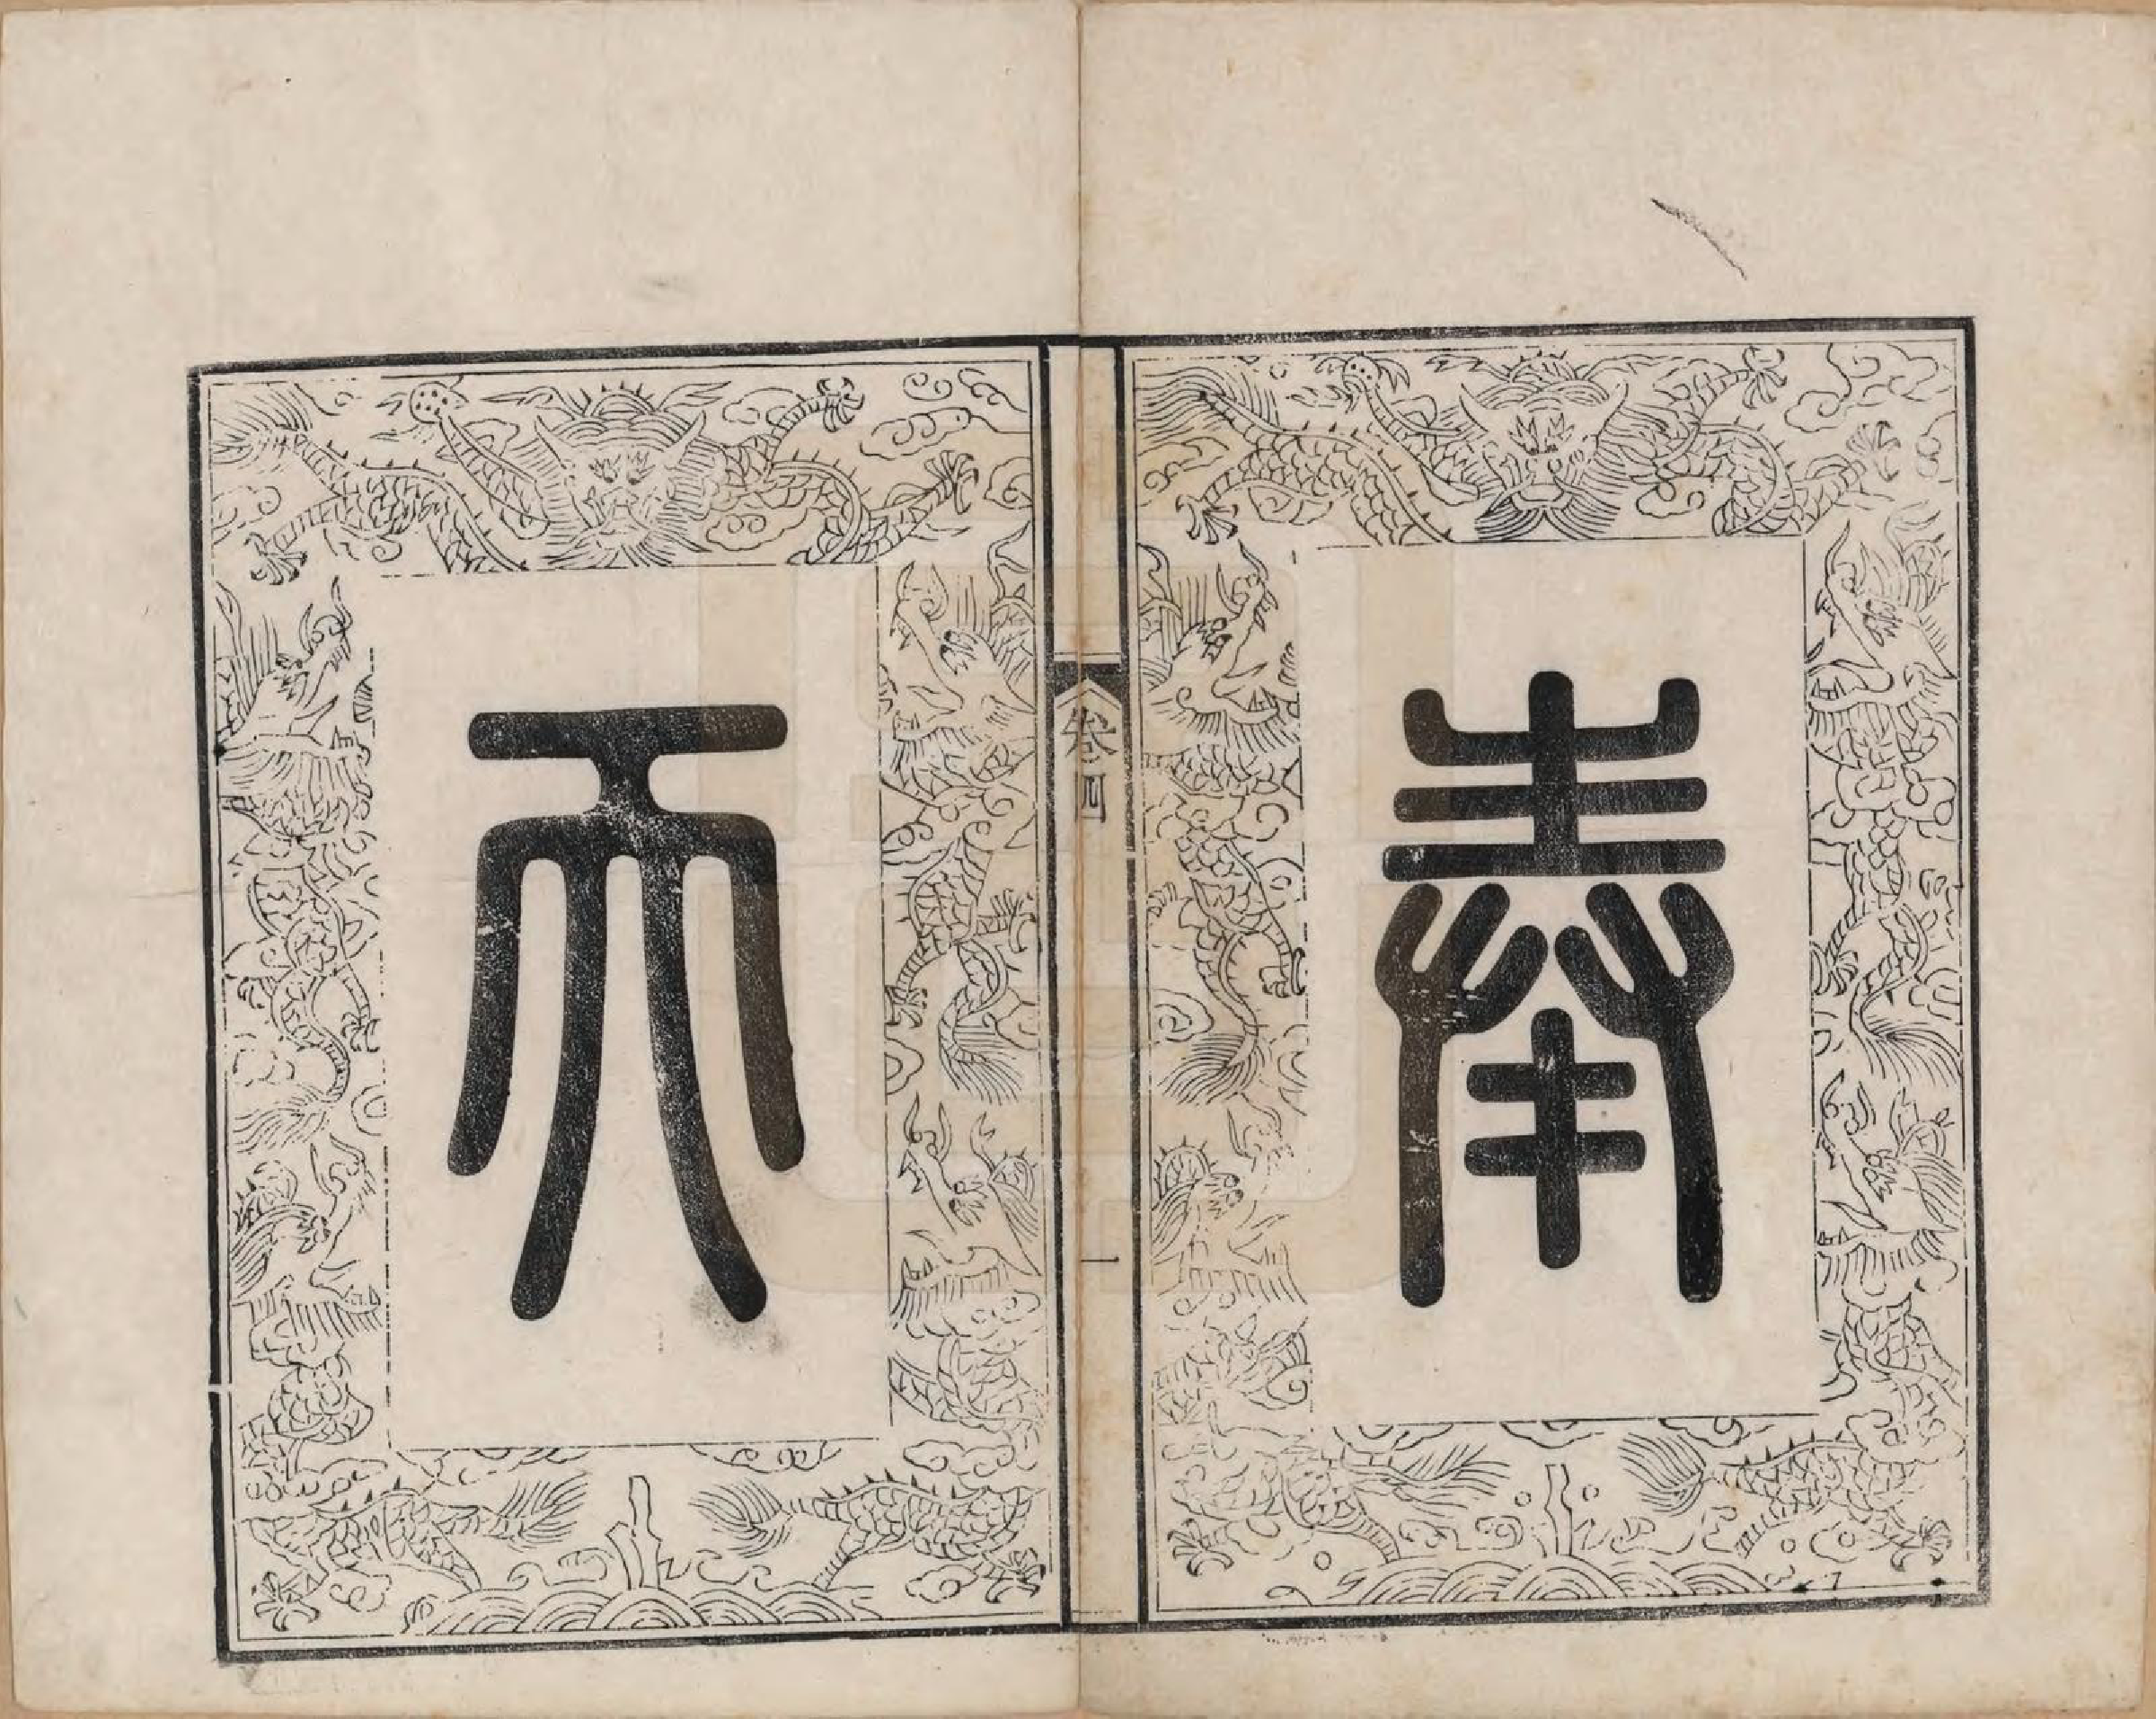 奉
卷四
一
天